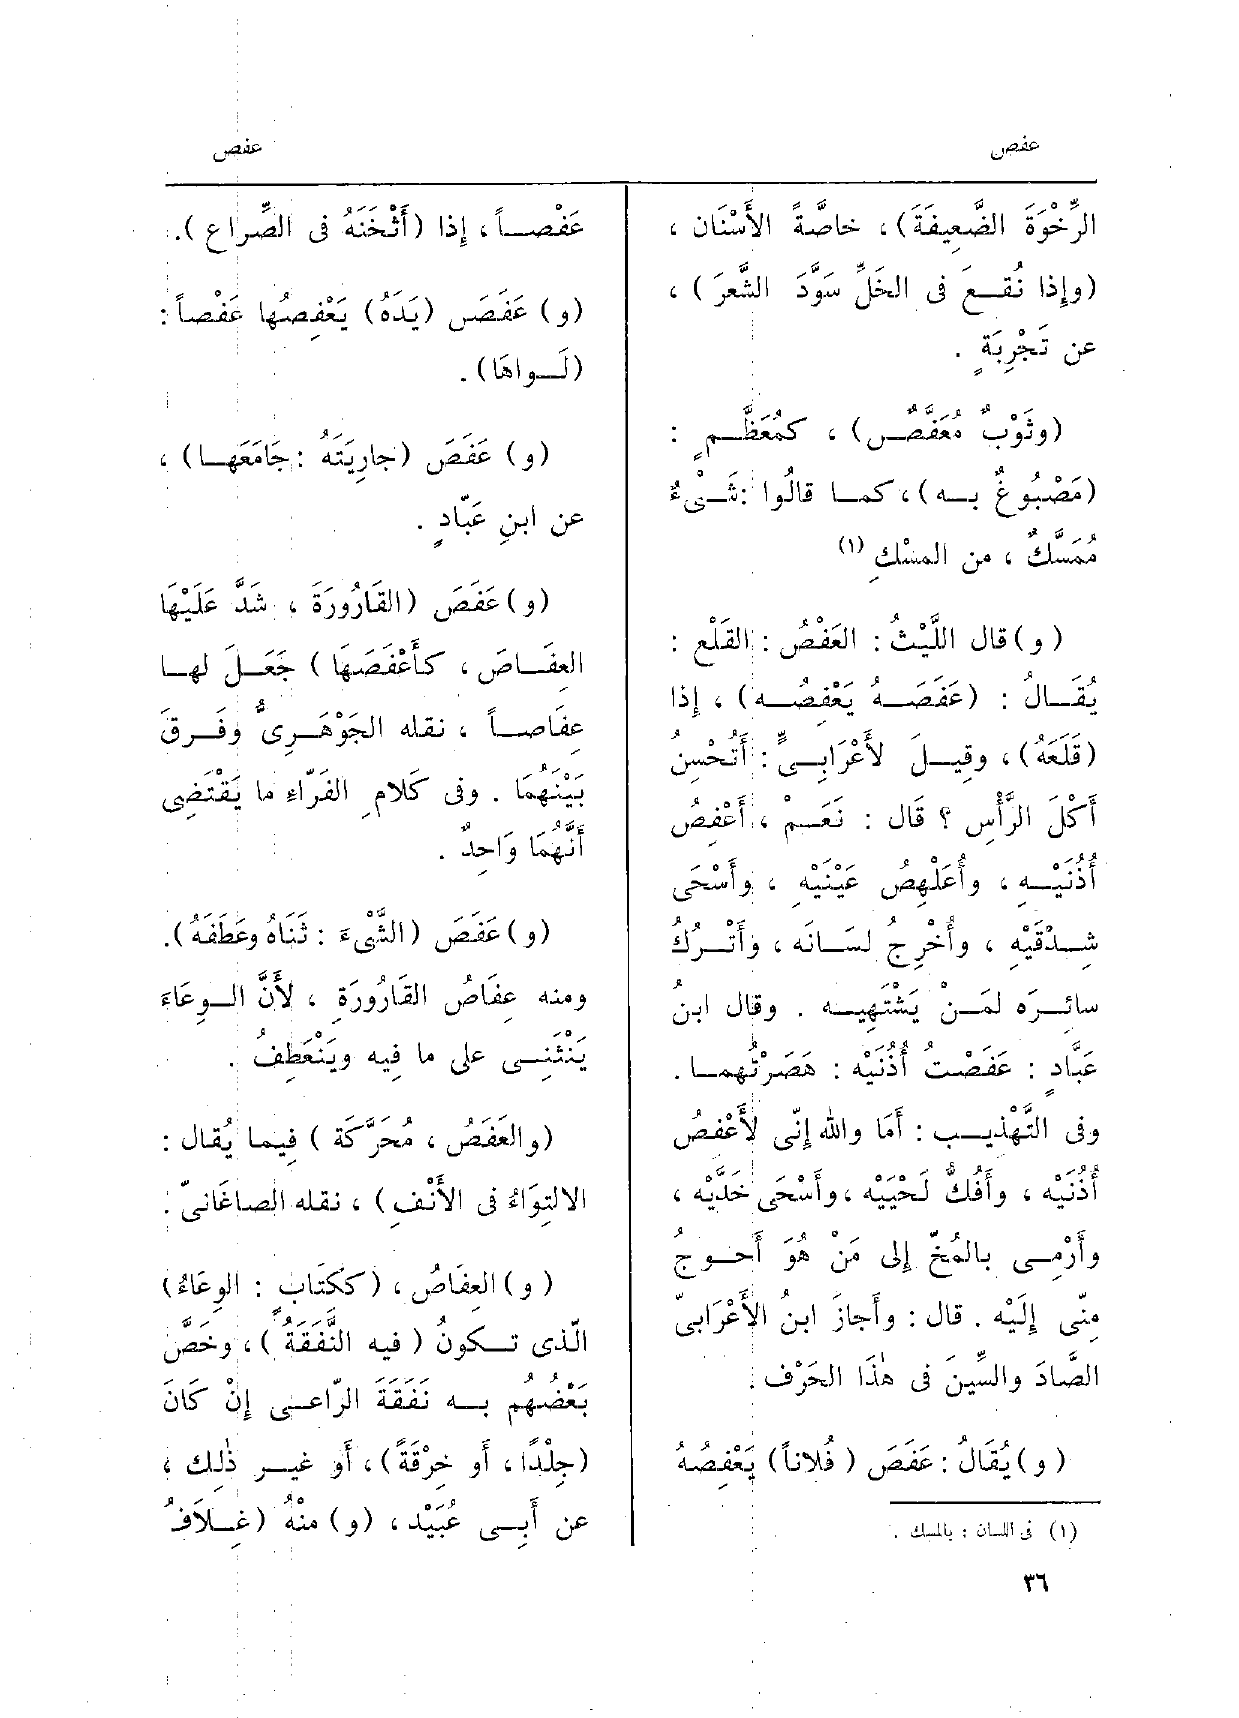 عفص
عفص
الرِّخْوَةَ الضَّعِيفَةَ) ، خاصَّةً الأَسْنَان ،
(وإذا نُقِعَ فى الخَلِّ سَوَّدَ الشَّعرَ ) ،
عن تَجْرِبَةٍ .
(وثَوْبٌ مُعَفَّصٌ) ، كمُعَظَّمٍ :
(مَصْبُوغٌ به) ، كما قالُوا : شَىْءٌ
مُمَسَّكٌ ، من المِسْكِ (١)
(و) قال اللَّيْثُ : العَفْصُ : القَلْع :
يُقَالُ : (عَفَصَهُ يَعْفِصُه) ، إذا
(قَلَعَهُ) ، وقِيلَ لأَعْرَابِىٍّ : أَتُحْسِن
أَكْلَ الرَّأْسِ ؟ قَال : نَعَمْ ، أَعْفِصُ
أُذُنَيْهِ ، وأُعَلْهِصُ عَيْنَيْهِ ، وأَسْحَى
شِدْقَيْهِ ، وأُخْرِجُ لسَانَه ، وأَتْرُكُ
سائرَه لمَنْ يَشْتَهِيه . وقال ابنُ
عَبَّادٍ : عَفَصْتُ أُذُنَيْه : هَصَرْتُهما .
وفى التَّهْذِيب : أَمَا والله إِنّى لأَعْفِصُ
أُذُنَيْه ، وأَفُكُّ لَحْيَيْه ، وأَسْحَى خَدَّيْه ،
وأَرْمِى بالمُخِّ إلى مَنْ هُوَ أَحوجُ
مِنِّى إِلَيْه . قال : وأَجازَ ابنُ الأَعْرَابىّ
الصَّادَ والسِّينَ فى هٰذَا الحَرْف .
(و) يُقَالُ : عَفَصَ (فُلاناً) يَعْفِصُهُ
(١) فى اللسان : بالمسك .
عَفْصاً ، إذا (أَثْخَنَهُ فى الصِّراع ).
(و) عَفَصَ (يَدَهُ) يَعْفِصُها عَفْصاً :
(لَواهَا) .
(و) عَفَصَ (جارِيَتَهُ : جَامَعَها) ،
عن ابنِ عَبّادٍ .
(و) عَفَصَ (القَارُورَةَ ، شَدَّ عَلَيْهَا
العِفَاصَ ، كأَعْفَصَهَا ) جَعَلَ لها
عِفَاصاً ، نقله الجَوْهَرِىُّ وفَرقَ
بَيْنَهُمَا . وفى كَلامِ الفَرّاءِ ما يَقْتَضِى
أَنَّهُمَا وَاحِدٌ .
(و) عَفَصَ (الشَّىْءَ : ثَنَاهُ وعَطَفَهُ).
ومنه عِفَاصُ القَارُورَةِ ، لأَنَّ الوِعَاءَ
يَنْثَنِى على ما فِيه ويَنْعَطِفُ .
(والعَفَصُ ، مُحَرَّكَة ) فِيما يُقال :
الالتِوَاءُ فى الأَنْفِ ) ، نقله الصاغَانىّ .
(و) العِفَاصُ ، (ككِتَابٍ : الوِعَاءُ)
الَّذى تكونُ ( فيه النَّفَقَةُ ) ، وخَصَّ
بَعْضُهُم به نَفَقَةَ الرّاعِى إِنْ كَانَ
(جِلْدًا ، أو خِرْقَةً) ، أو غير ذٰلِك ،
عن أَبِى عُبَيْدٍ ، (و) منْهُ (غِلَافُ
٣٦